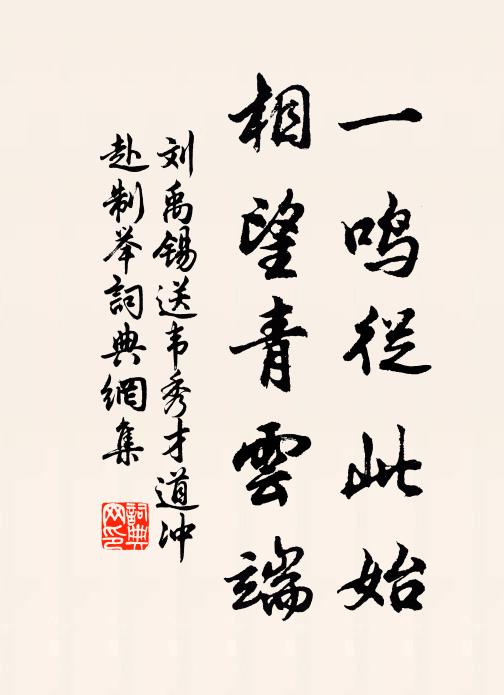 一鸣從此始
相望青雲端
刘禹锡送韦秀才道冲
赴制举詞典網集
詞典
网印